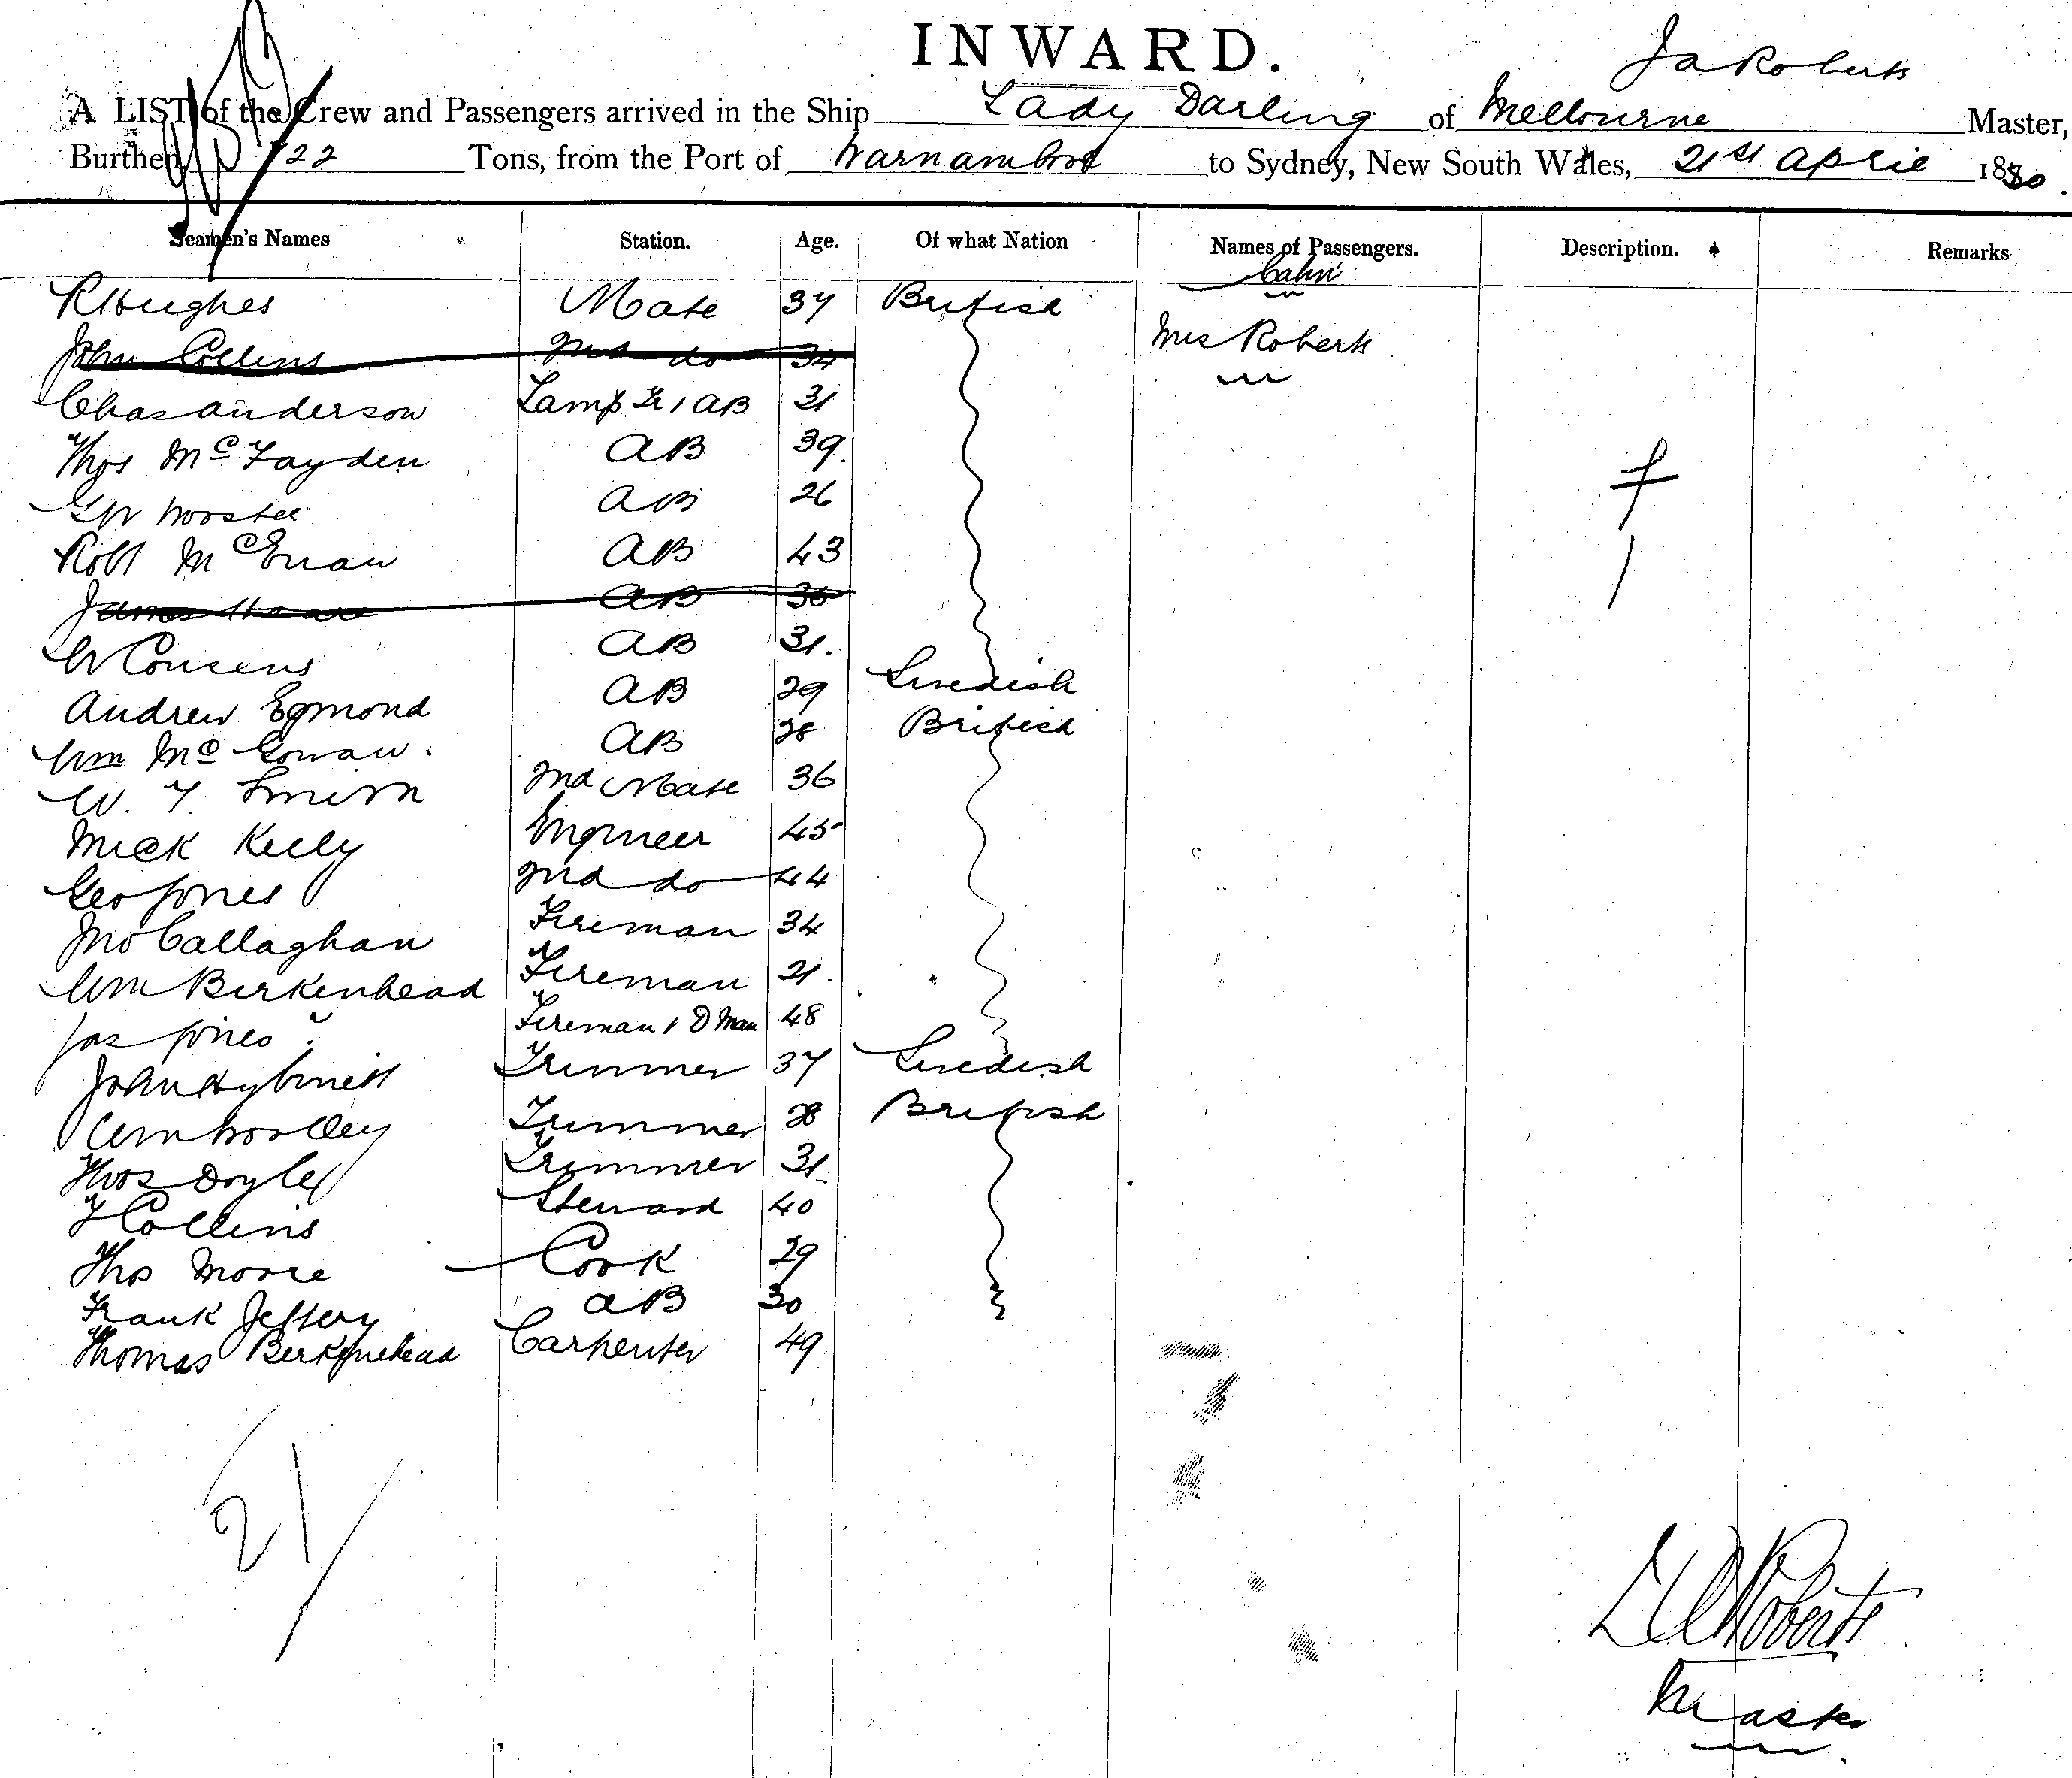 INWARD.
Ja Roberts
A LIST of the Crew and Passengers arrived in the Ship Lady Darling of Melbourne Master,
Burthen 722 Tons, from the Port of Warnambool to Sydney, New South Wales, 21st April 1880.
Seamen's Names Station. Age. Of what Nation Names of Passengers. Description. Remarks
Cabin
R Hughes Mate 37 British
Mrs Roberts
John Collins 2nd do 34
Chas Anderson Lamp Tr / AB 31
Thos Mc Fayden AB 39.
GW AB 26
Robt Mc Ewan AB 43 1
James AB 36
W Cousens AB 31.
Andrew Egmond AB 29 Swedish
Wm Mc Gowan. AB 28 British
W. T. Smith 2nd Mate 36
Mick Kelly Engineer 45
Geo Jones 2nd do 44
Jno Callaghan Fireman 34
Wm Birkenhead Fireman 21.
Jas Jones Fireman / D Man 48
John Trimmer 37 Swedish
Wm Woolley Trimmer 28 British
Thos Doyle Trimmer 31
F Collins Steward 40
Thos Moore Cook 29
Frank Jeffery AB 30
Thomas Berkenhead Carpenter 49
21/
Roberts
Master